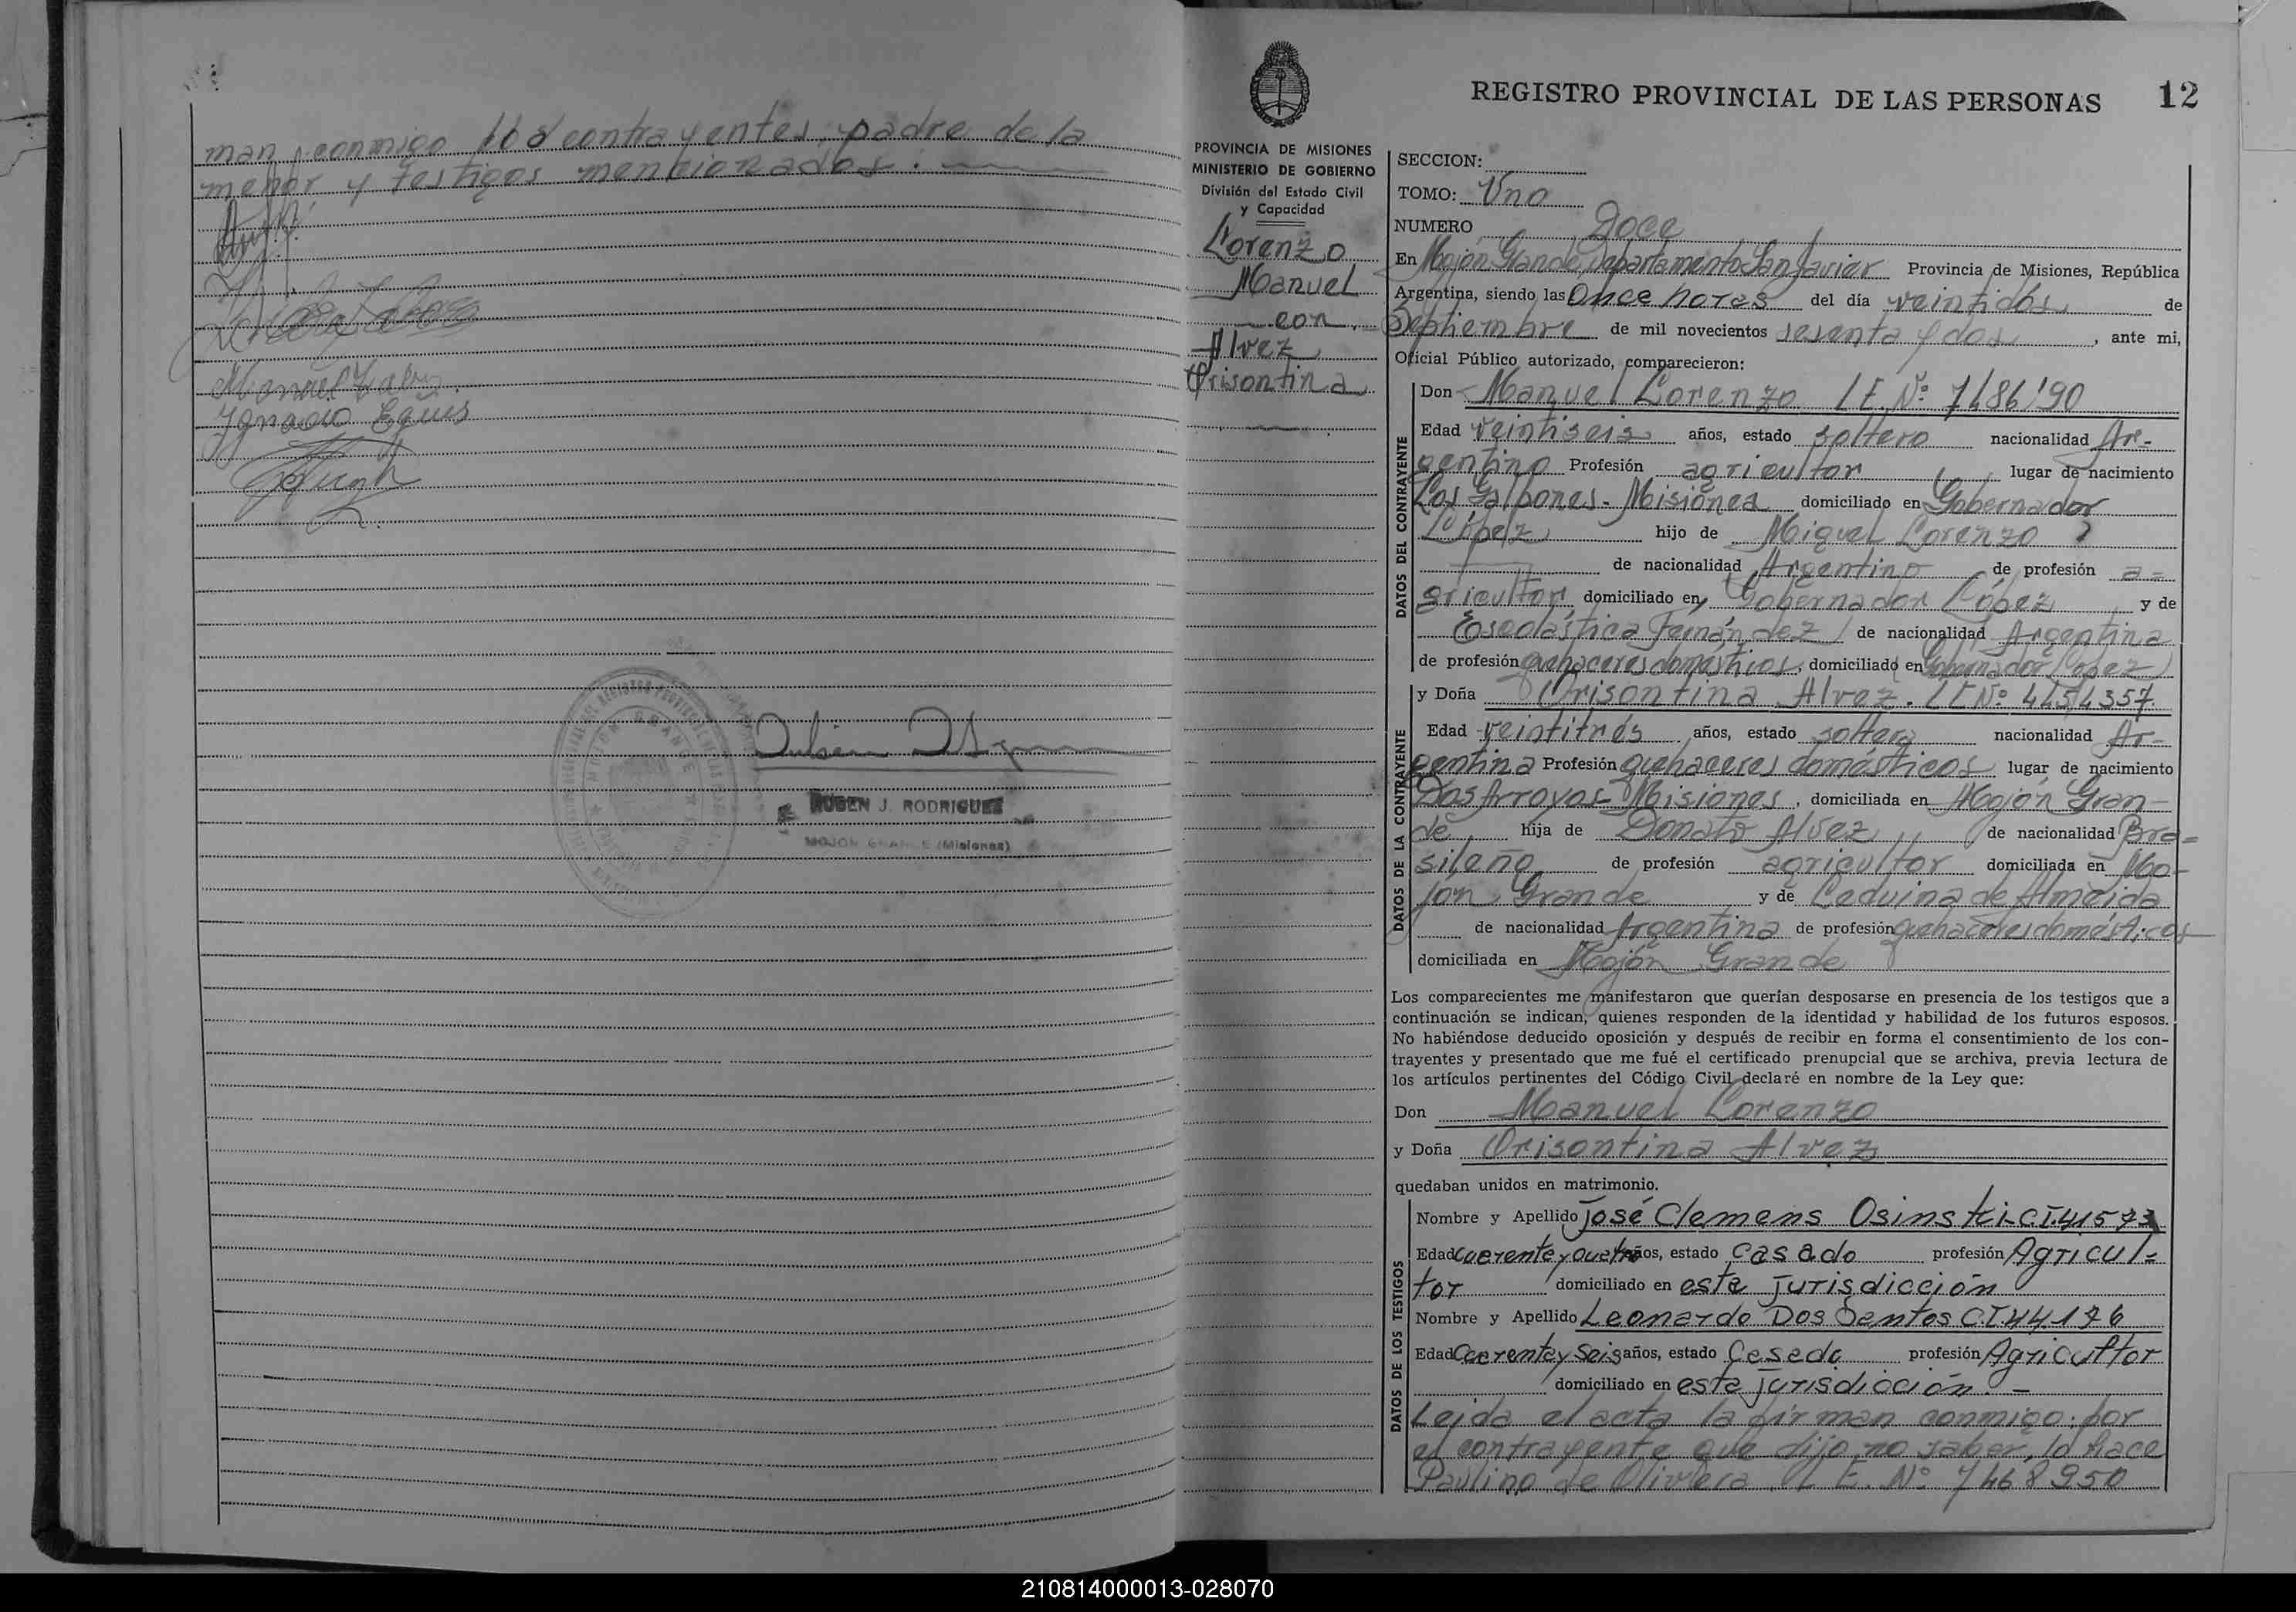 man conmigo los contrayentes, padre de la
menor y testigos mencionados.
Manuel
Ignacio
RUBEN J. RODRIGUEZ
MOJON GRANDE (Misiones)
REGISTRO PROVINCIAL DE LAS PERSONAS 12
PROVINCIA DE MISIONES
MINISTERIO DE GOBIERNO
División del Estado Civil
y Capacidad
Lorenzo
Manuel
con
Alvez
Orisontina
SECCION:
TOMO: Uno
NUMERO Doce
En Mojón Grande, Departamento San Javier Provincia de Misiones, República
Argentina, siendo las Once horas del día veintidós de
Septiembre de mil novecientos sesenta y dos, ante mi,
Oficial Público autorizado, comparecieron:
DATOS DEL CONTRAYENTE
Don Manuel Lorenzo L E Nº
Edad veintiseis años, estado soltero nacionalidad Ar-
gentino Profesión agricultor lugar de nacimiento
Los Galpones - Misiones domiciliado en Gobernador
López hijo de Miguel Lorenzo
de nacionalidad Argentino de profesión a=
gricultor, domiciliado en, Gobernador López y de
Escolástica Fernández de nacionalidad Argentina
de profesión quehaceres domésticos, domiciliado en Gobernador López
DATOS DE LA CONTRAYENTE
y Doña Orisontina Alvez. L E Nº 4454357.
Edad veintitrés años, estado soltera nacionalidad Ar-
gentina Profesión quehaceres domésticos lugar de nacimiento
Dos Arroyos - Misiones, domiciliada en Mojón Gran-
de hija de Donato Alvez de nacionalidad Bra=
sileño de profesión agricultor domiciliada en Mo-
jón Grande y de Ceduina de Almeida
de nacionalidad Argentina de profesión quehaceres domésticos
domiciliada en Mojón Grande
Los comparecientes me manifestaron que querían desposarse en presencia de los testigos que a
continuación se indican, quienes responden de la identidad y habilidad de los futuros esposos.
No habiéndose deducido oposición y después de recibir en forma el consentimiento de los con-
trayentes y presentado que me fué el certificado prenupcial que se archiva, previa lectura de
los artículos pertinentes del Código Civil declaré en nombre de la Ley que:
Don Manuel Lorenzo
y Doña Orisontina Alvez
quedaban unidos en matrimonio.
DATOS DE LOS TESTIGOS
Nombre y Apellido José Clemens Osinski - C.I.
Edad cuarenta y cuatro años, estado Casado profesión Agricul=
tor domiciliado en esta jurisdicción
Nombre y Apellido Leonardo Dos Santos C.I. 44.176
Edad Cuarenta y Seis años, estado Casado profesión Agricultor
domiciliado en esta jurisdicción. -
Leida el acta la firman conmigo; por
el contrayente que dijo no saber, lo hace
Paulino de Olivera L E. Nº 7468950
210814000013-028070